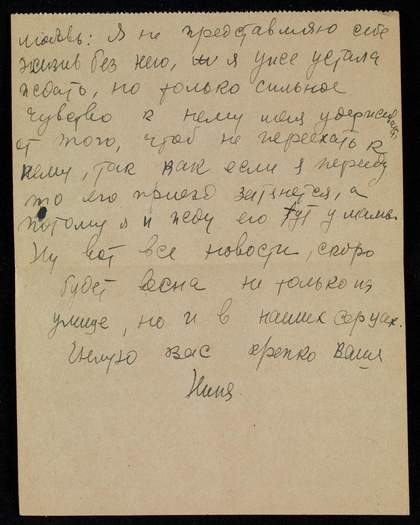 любовь: Я не представляю себе
жизнь без него, я уже устала
ждать, но только сильное
чувство к нему меня удерживает
от того, чтоб не переехать к
нему, так как если я перееду
то его приезд затянется, а
потому я и жду его тут у мамы.
Ну вот все новости, скоро
будет весна не только на
улице, но и в наших сердцах.
Целую вас крепко Ваша
Нина